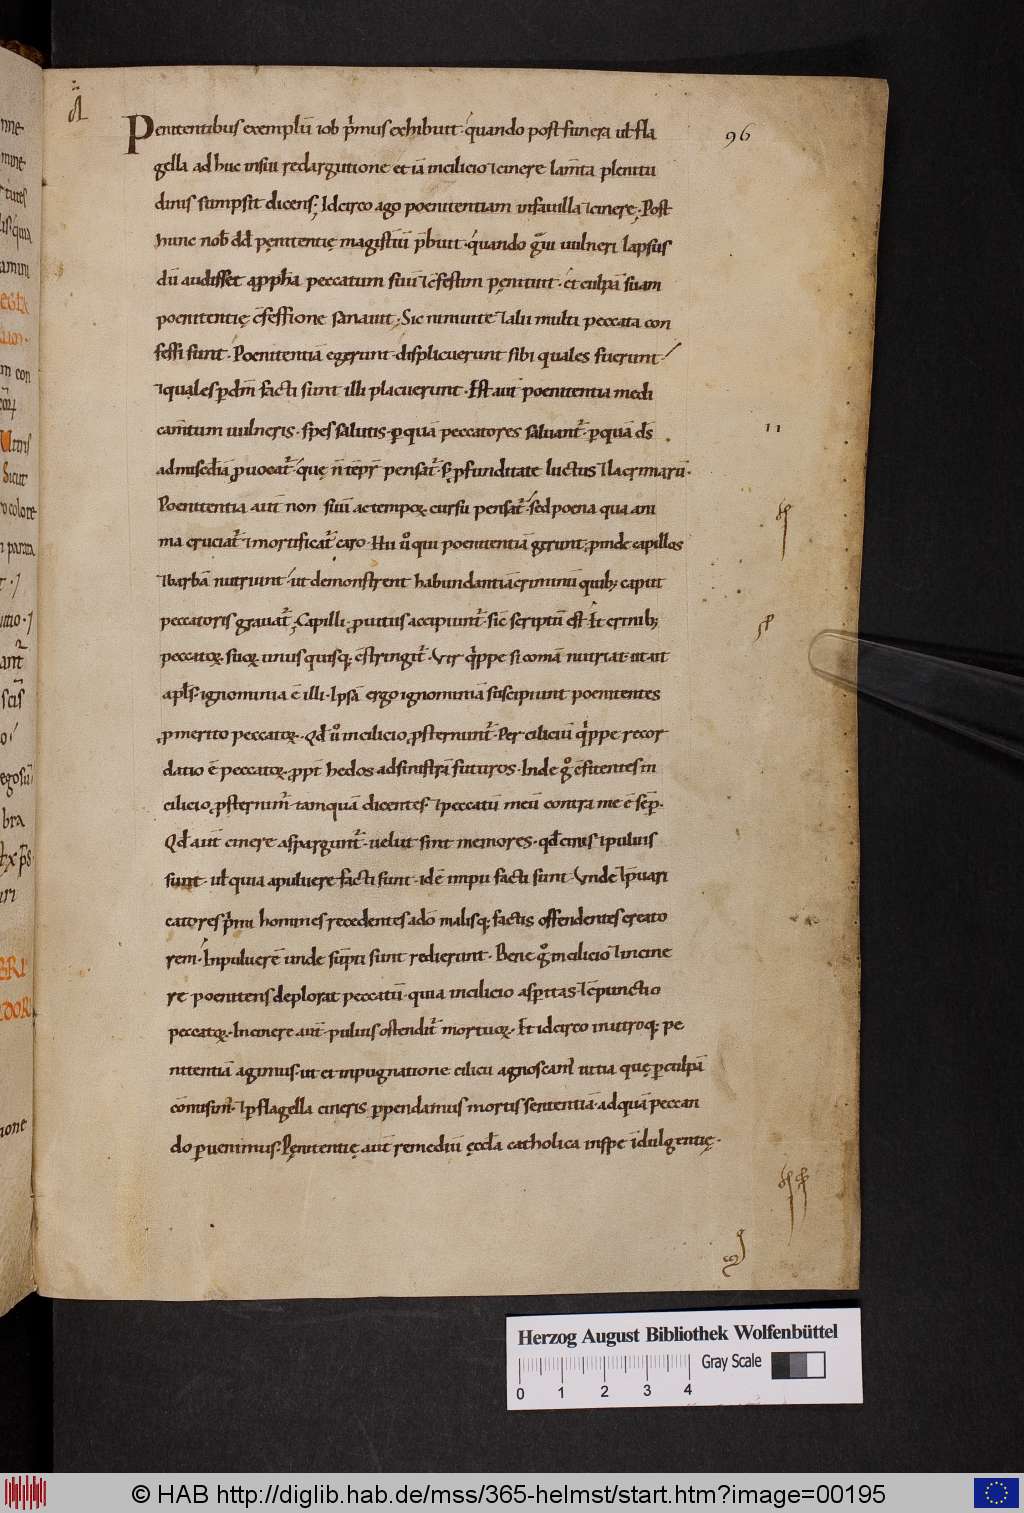 Penitentibus exemplū iob p̄mus exhibuit · quando post funera ul̄ fla
gella ad huc in sui redargutione et iā in cilicio ⁊ cinere lam̄ta plenitu
dinis sumpsit dicens ; Idcirco ago poenitentiam in fauilla ⁊ cinere ; Post
hunc nob̄ dd̄ pęnitentię magist̄iū p̄buit · quando g̃ui uulneri lapsus
dū audisset a ꝓph̄a peccatum suū ⁊ c̄festim pęnituit · et culpā suam
poenitentię c̄fessione sanauit ; Sic niniuite ⁊ alii multi peccata con
fessi sunt · Poenitentiā egerunt · displicuerunt sibi quales fuerunt ·
⁊ quales p̱ dm̄ facti sunt illi placuerunt · Est aut̄ poenitentia medi
cam̄tum uulneris · spes salutis · ꝑ quā peccatores saluant̄ · ꝑ quā ds̄
ad misc̄diā ꝓuocat̄ · quę n̄ tēpr̄ pensat̄ · s; ꝓfunditate luctus ⁊ lacrimarū ·
Poenitentia aut̄ non suū ac tempoꝝ cursu pensat̄ · sed poena qua ani
ma cruciat̄ ⁊ mortificat̄ caro · Hii ů qui poenitentiā gerunt · ꝓinde capillos
⁊ barbā nutriunt · ut demonstrent habundantiā criminū quib; caput
peccatoris grauat̄ ; Capilli ꝓ uitiis accipiunt̄ · sic̄ scriptū est · Et crinib;
peccatoꝝ suoꝝ unus quisq; c̄stringit̄ · Vir q̊ppe si comā nutriat · ut ait
apl̄s · ignominia ē illi · Ipsā ergo ignominiā suscipiunt poenitentes
ꝓ merito peccatoꝝ · Qd̄ ů in cilicio ꝓsternunt̄ · Per ciliciū q̊ppe recor
datio ē peccatoꝝ · ꝓpt̄ hedos ad sinistrā futuros · Inde g̊ c̄fitentes in
cilicio ꝓsternim̄ · tāmquā dicentes · ⁊ peccatū meū contra me ē sēp̱ ·
Qd̄ aut̄ cinere aspargunt̄ · uelut sint memores · qd̄ cinis ⁊ puluis
sunt · ul̄ quia a puluere facti sunt · idē impii facti sunt · Vnde ⁊ p̄uari
catores p̄mi homines recedentes a do malisq; factis offendentes creato
rem · In puluerē unde sūpti sunt redierunt · Bene g̊ in cilicio ⁊ in cine
re poenitens deplorat peccatū · quia in cilicio asp̱itas · ⁊ c̄punctio
peccatoꝝ · In cinere aut̄ · puluis ostendit̄ mortuoꝝ · Et idcirco in utroq; pe
nitentiā agimus · ut et in pugnatione cilicii agnoscam̄ uitia quę ꝑ culpā
cōmisim̄ · ⁊ ꝑ flagella cineris ꝑpendamus mortis sententiā · ad quā peccan
do ꝑuenimus · Pęnitentię aut̄ remediū ęccl̄a catholica in spe īdulgentię ·
96
Herzog August Bibliothek Wolfenbüttel
Gray Scale
0 1 2 3 4
© HAB http://diglib.hab.de/mss/365-helmst/start.htm?image=00195